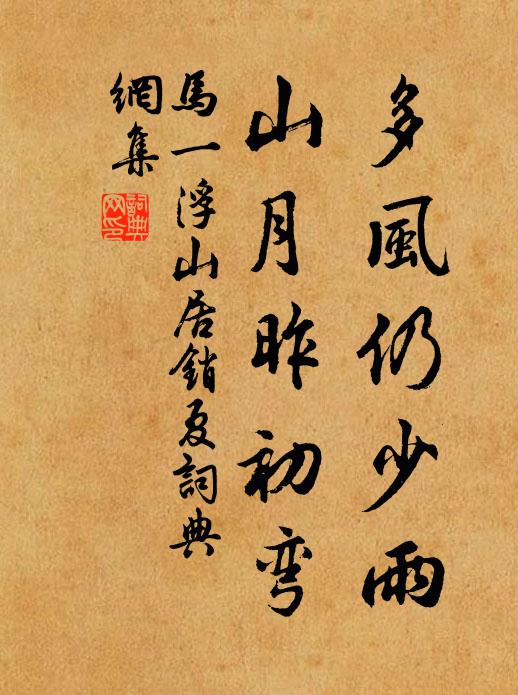 多風仍少雨
山月昨初弯
馬一浮山居銷夏詞典
網集
詞典網印